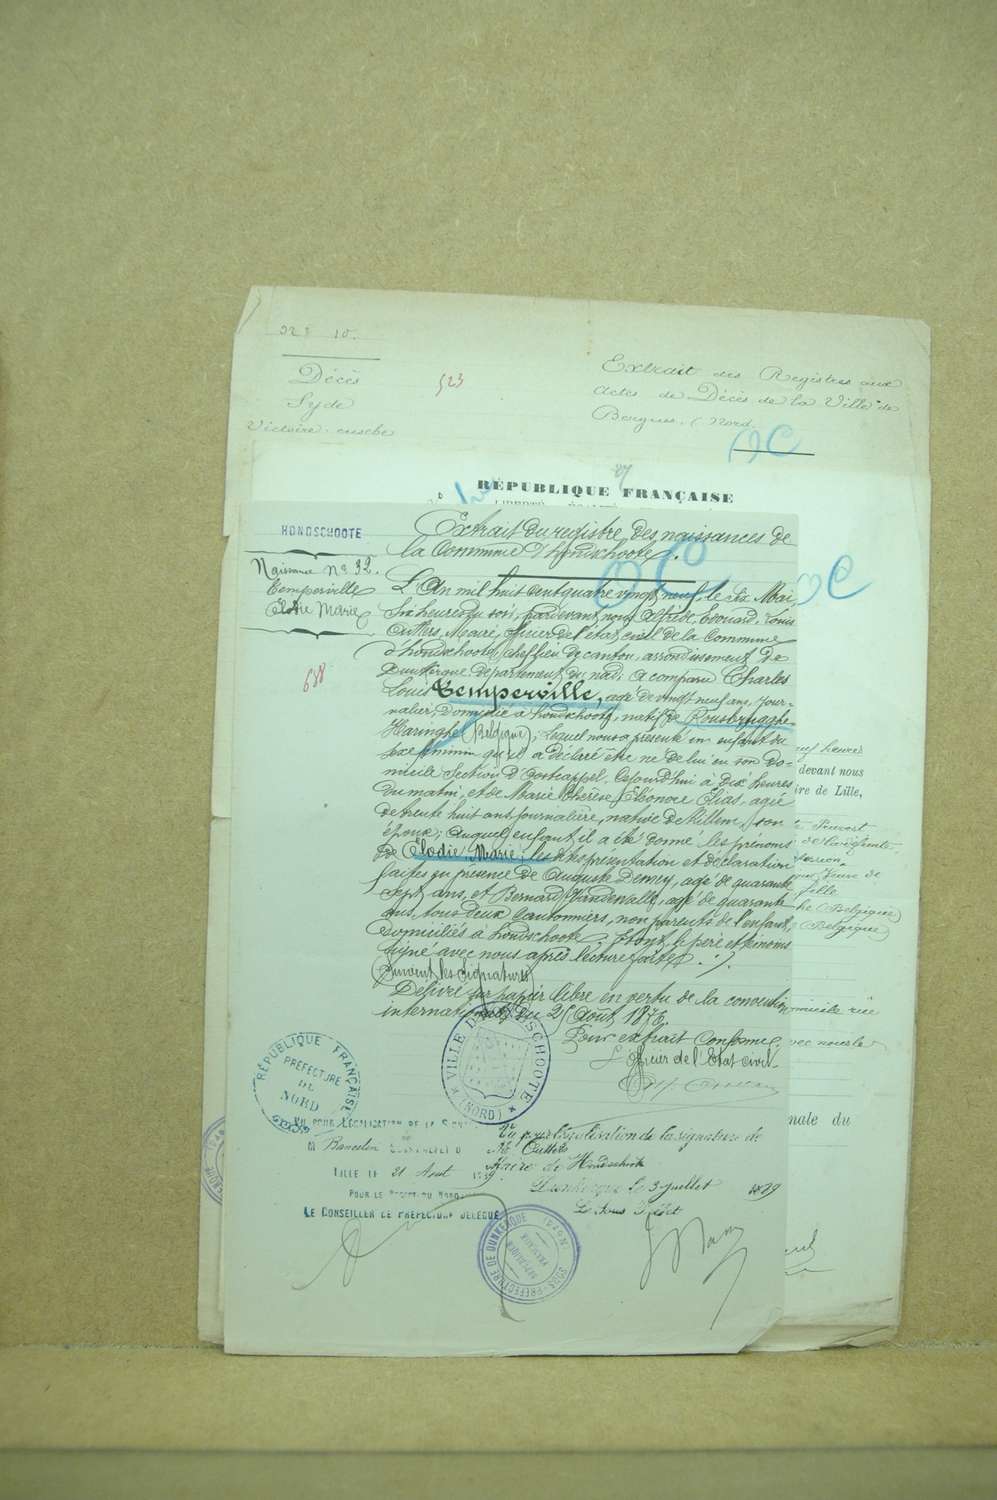 323 10.
Décès
Syde
Victoire eusebe
523
Extrait des Registres aux
Actes de Décès de la Ville de
Bergues. (Nord.
OC
RÉPUBLIQUE FRANÇAISE
HONDSCHOOTE
Naissance No 32.
Temperville
Elodie Marie
638
Extrait du registre des naissances de
la Commune d'Hondschoote.
OC
OC
L'An mil huit cent quatre vingt neuf, le six Mai
six heures du soir, pardevant nous Alfrède, Edouard, Louis
Outters, Maire, officier de l'état civil de la Commune
d'hondschoote, chef lieu de canton, arrondissement de
Dunkerque département du nord, a comparu Charles
Louis Temperville, agé de vingt neuf ans, jour-
nalier, domicilié à hondschoote, natif de Rousbrugghe
Haringhe (Belgique), lequel nous a présenté un enfant du
sexe féminin qu'il a déclaré être né de lui en son do-
micile section d'Oostcappel, cejourd'hui à dix heures
du matin, et de Marie Thérèse Eléonore Elias, agée
de trente huit ans, journalière, native de Killem, son
épouse; auquel enfant il a été donné les prénoms
de Elodie, Marie; les dites présentation et déclaration
faites en présence de Auguste Demey, agé de quarante
sept ans, et Bernard Vandewalle, agé de quarante
ans, tous deux Cantonniers, non parents de l'enfant,
domiciliés à hondschoote, & ont, le père et témoins
signé avec nous après lecture faite.
(Suivent les signatures)
Délivré sur papier libre en vertu de la convention
internationale du 25 Août 1876
Pour extrait conforme,
L'officier de l'Etat civil
heures
devant nous
ire de Lille,
(Belgique)
(Belgique)
domicile rue
avec nous le
nale du
VILLE D'HONDSCHOOTE
(NORD)
RÉPUBLIQUE FRANÇAISE
PRÉFECTURE
DU
NORD
VU POUR LÉGALISATION DE LA SIGNAT
M Bancelin
LILLE LE 21 Aout
POUR LE PRÉFET DU NORD
LE CONSEILLER DE PRÉFECTURE DÉLÉGUÉ
Vu pour légalisation de la signature de
Mr Outters
Maire de Hondschoote
Dunkerque le 3 juillet 1889
Le Sous Préfet
SOUS-PRÉFECTURE DE DUNKERQUE (NORD)
RÉPUBLIQUE
FRANÇAISE